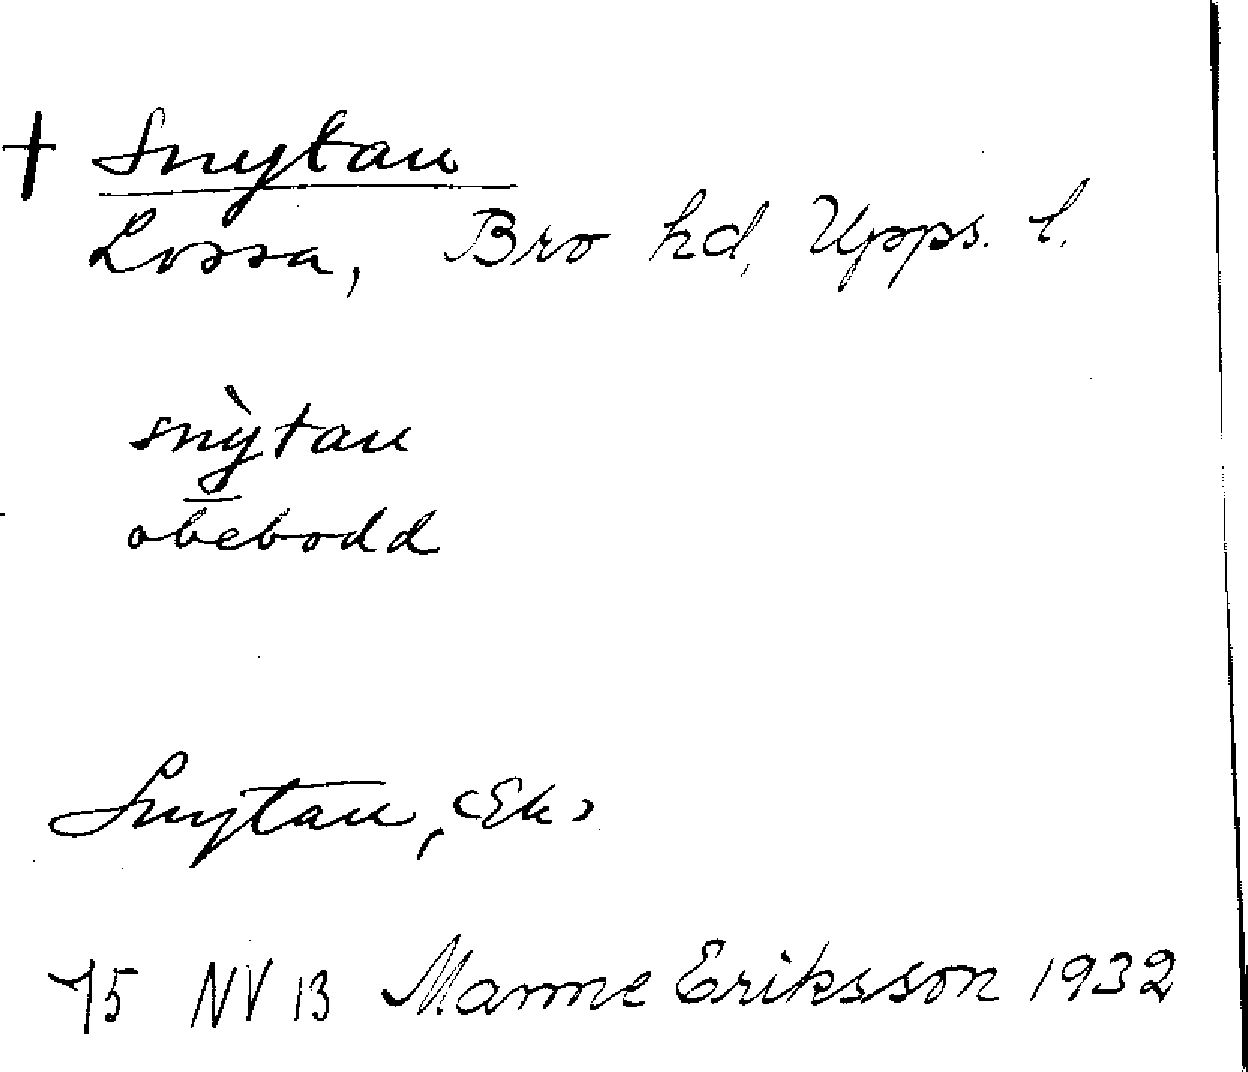 + Snytan
Lossa, Bro hd, Upps. l.
snỳtan
obebodd
Snytan, (Ek)
75 NV 13 Manne Eriksson 1932